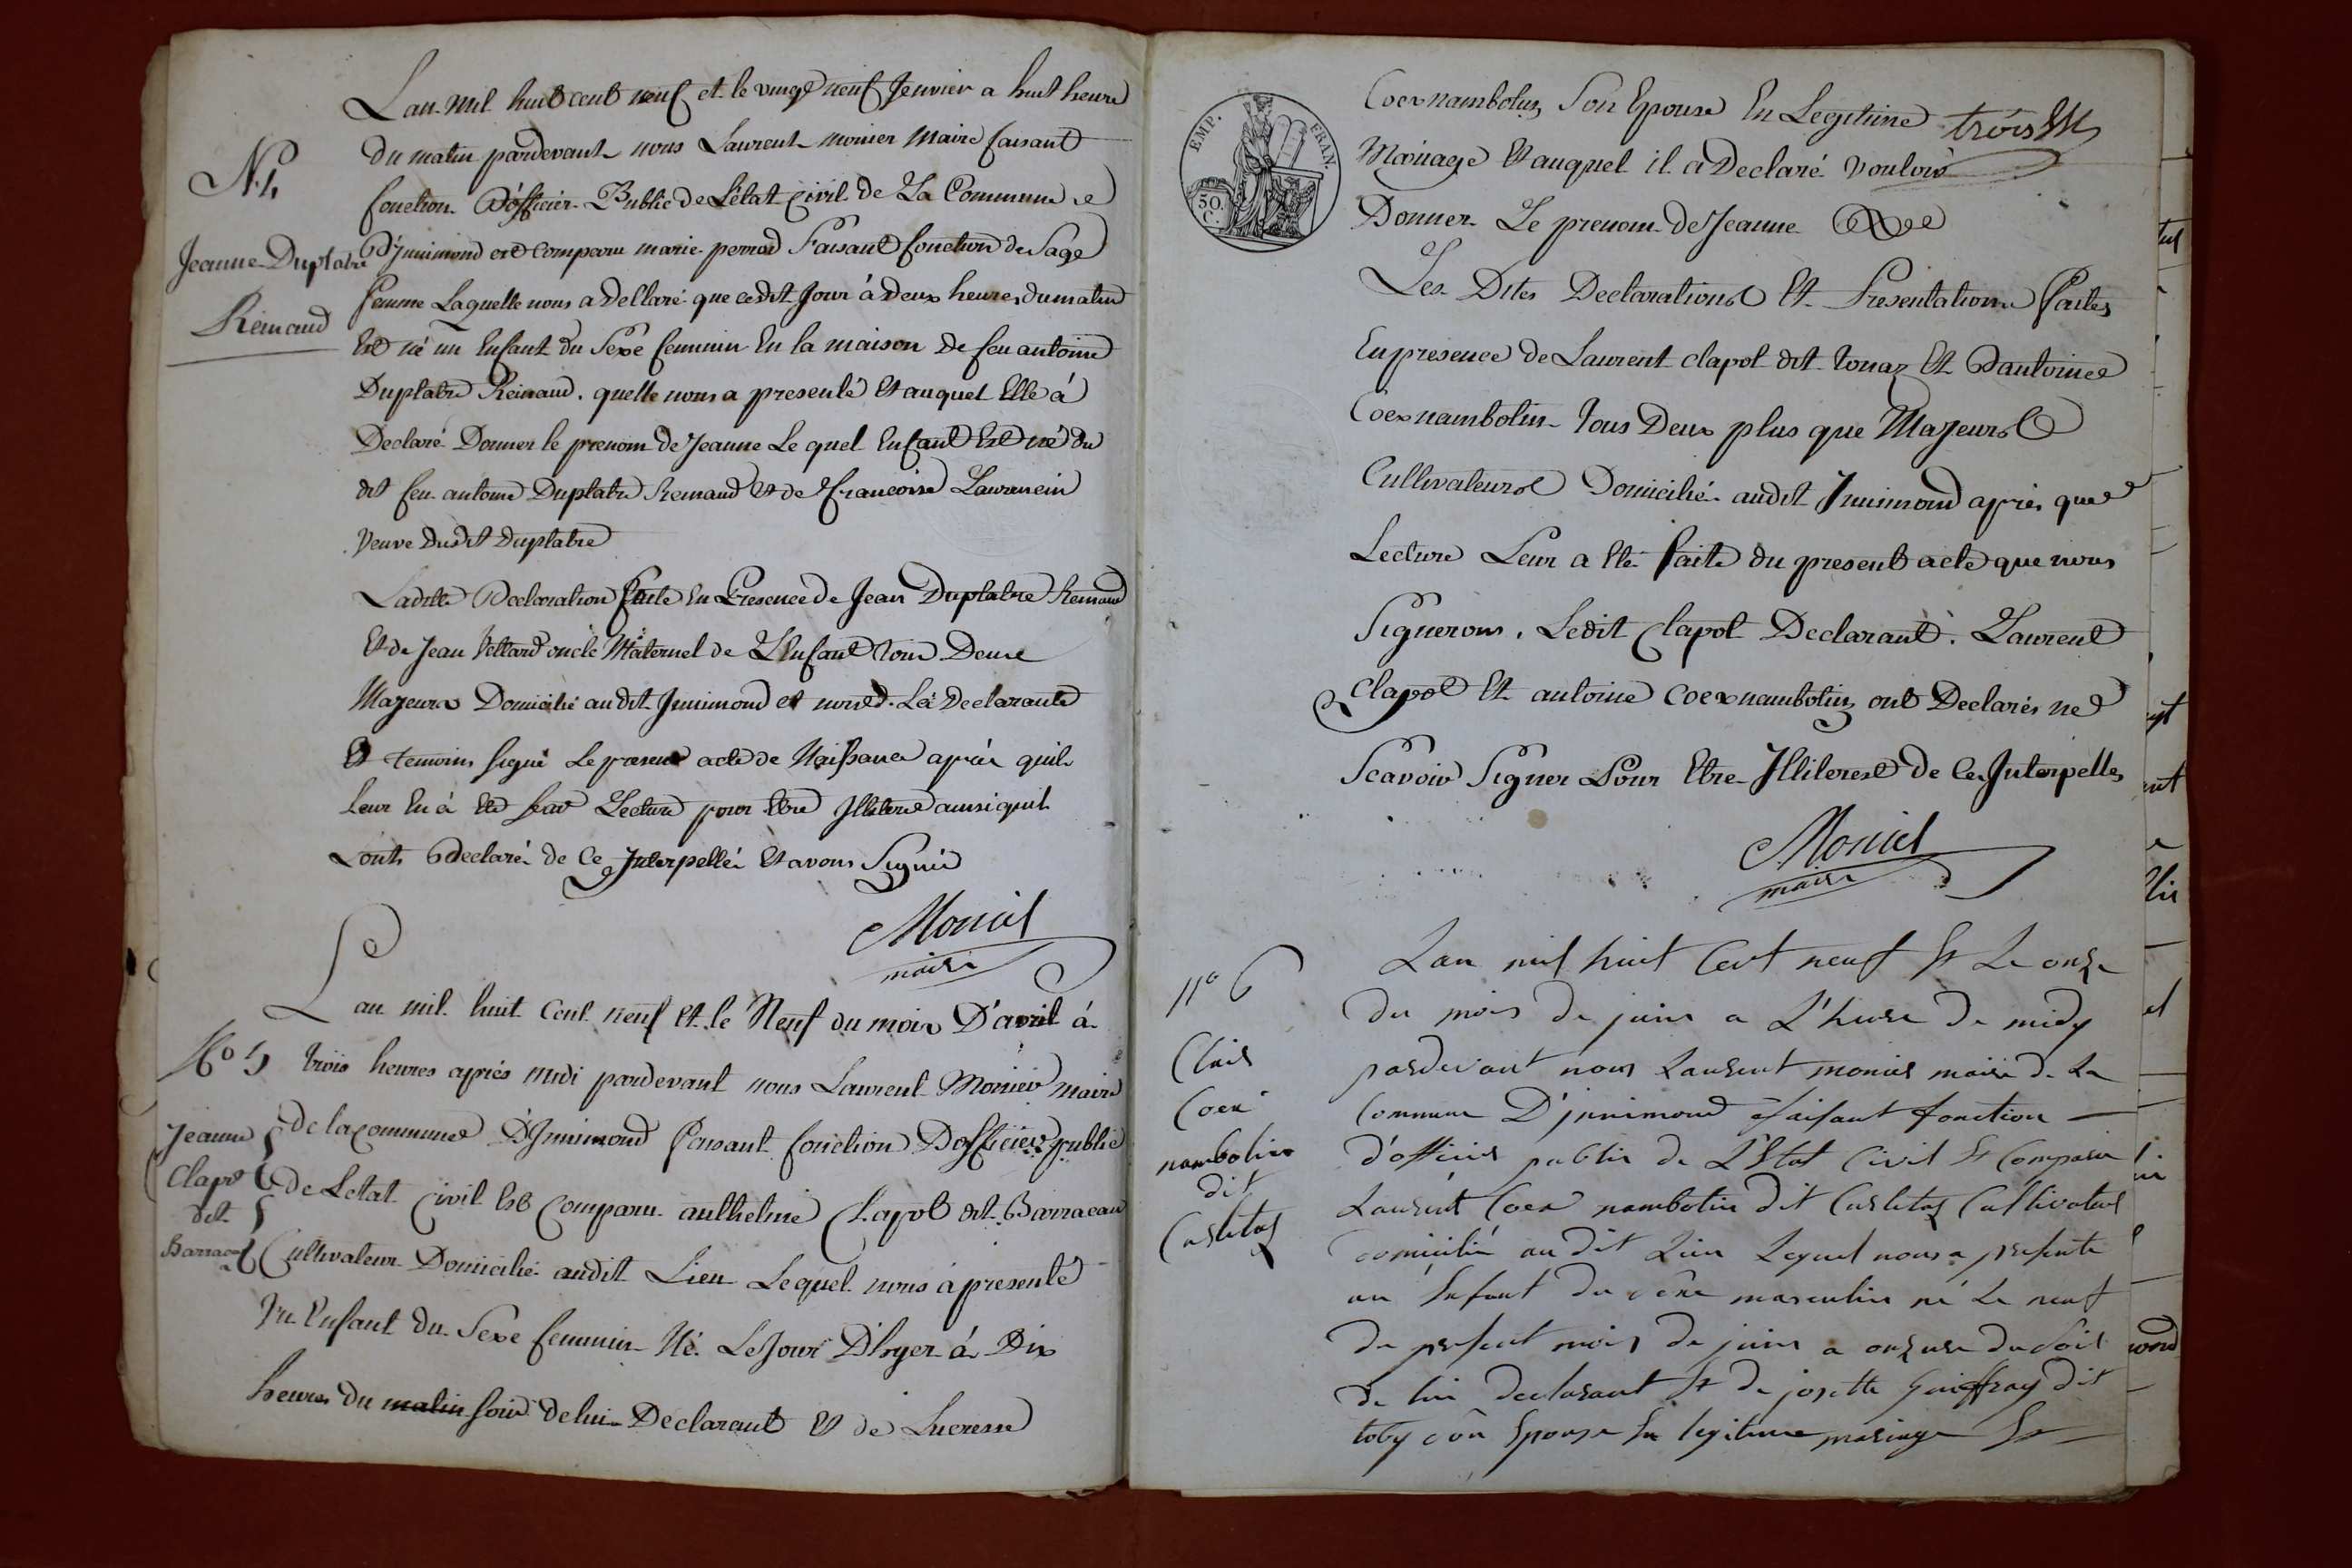 Lan mil huit cent neuf et le vingt neuf Jenvier a huit heure
du matin pardevant nous Laurent monier Maire faisant
fonction D'officier Public de L'état Civil de La Commune
D'Innimond est comparu marie perrod Faisant fonction de Sage
femme Laquelle nous a declaré que cedit Jour à deux heures du matin
Est né un Enfant du Sexe feminin En la maison De feu antoine
Duplatre Reinaud. quelle nous a presenté Et auquel Elle à
Declaré Donner le prenom de Jeanne Le quel Enfant Est né du
dit feu antoine Duplatre Remaud et de francoise Laurencin
Veuve dudit Duplatre
Ladite Declaration faite En Presence de Jean Duplatre Remaud
Et de Jean Vettard oncle Maternel de L'Enfant tous Deux
Majeurs Domicilié audit Innimond et nont. La Declarante
Et temoins signé Le present acte de Naissance après quil
leur En à Eté fait Lecture pour Etre Illiteré ainsi quil
Lonts declaré de Ce Interpellé Et avons Signé
Monier
maire
N.
Jeanne Duplatre
Reinaud
Lan mil huit Cent neuf Et le Neuf du mois D'avril à
trois heures après midi pardevant nous Laurent Monier maire
de la commune D'Innimond faisant fonction D'officier public
de Letat Civil Est Comparu anthelme Clapot dit Barracau
Cultivateur Domicilié audit Lieu Lequel nous à presenté
Un Enfant du Sexe feminin Né Le Jour D'hyer à Dix
heures du matin soir de lui Declarant Et de Lucresse
No 5
Jeanne
Clapot
dit
Barracau
EMP. FRAN.
50. C.
trois
Coex nambotin Son Epouse En Legitime
Mariage Et auquel il a Declaré Vouloir
Donner Le prenom de Jeanne
Les Dites Declarations Et Presentation Faites
En presence de Laurent Clapot dit touaz Et D'antoine
Coex nambotin tous Deux plus que Majeurs
Cultivateurs Domicilié audit Innimond après que
Lecture Leur a Eté faite du present acte que nous
Signerons. Ledit Clapot Declarant. Laurent
Clapot Et antoine Coex nambotin ont Declarés ne
Scavoir Signer Pour Etre Illiterest de Ce Interpelles
Monier
maire
n° 6
Clair
Coex
nambotin
dit
Castitaz
Lan mil huit Cent neuf Et Le onze
du mois de juin a L'heure de midy
pardevant nous Laurent monier maire de La
Commune D'innimond faisant fonction
d'officier public de L'Etat Civil Et Comparu
Laurent Coex nambotin dit Castitaz Cultivateur
domicilié audit Lieu Lequel nous a presenté
un Enfant du masculin né Le neuf
du present mois de juin a onze du soir
de lui declarant Et de josette Guiffray dit
toby son Epouse En legitime mariage Et